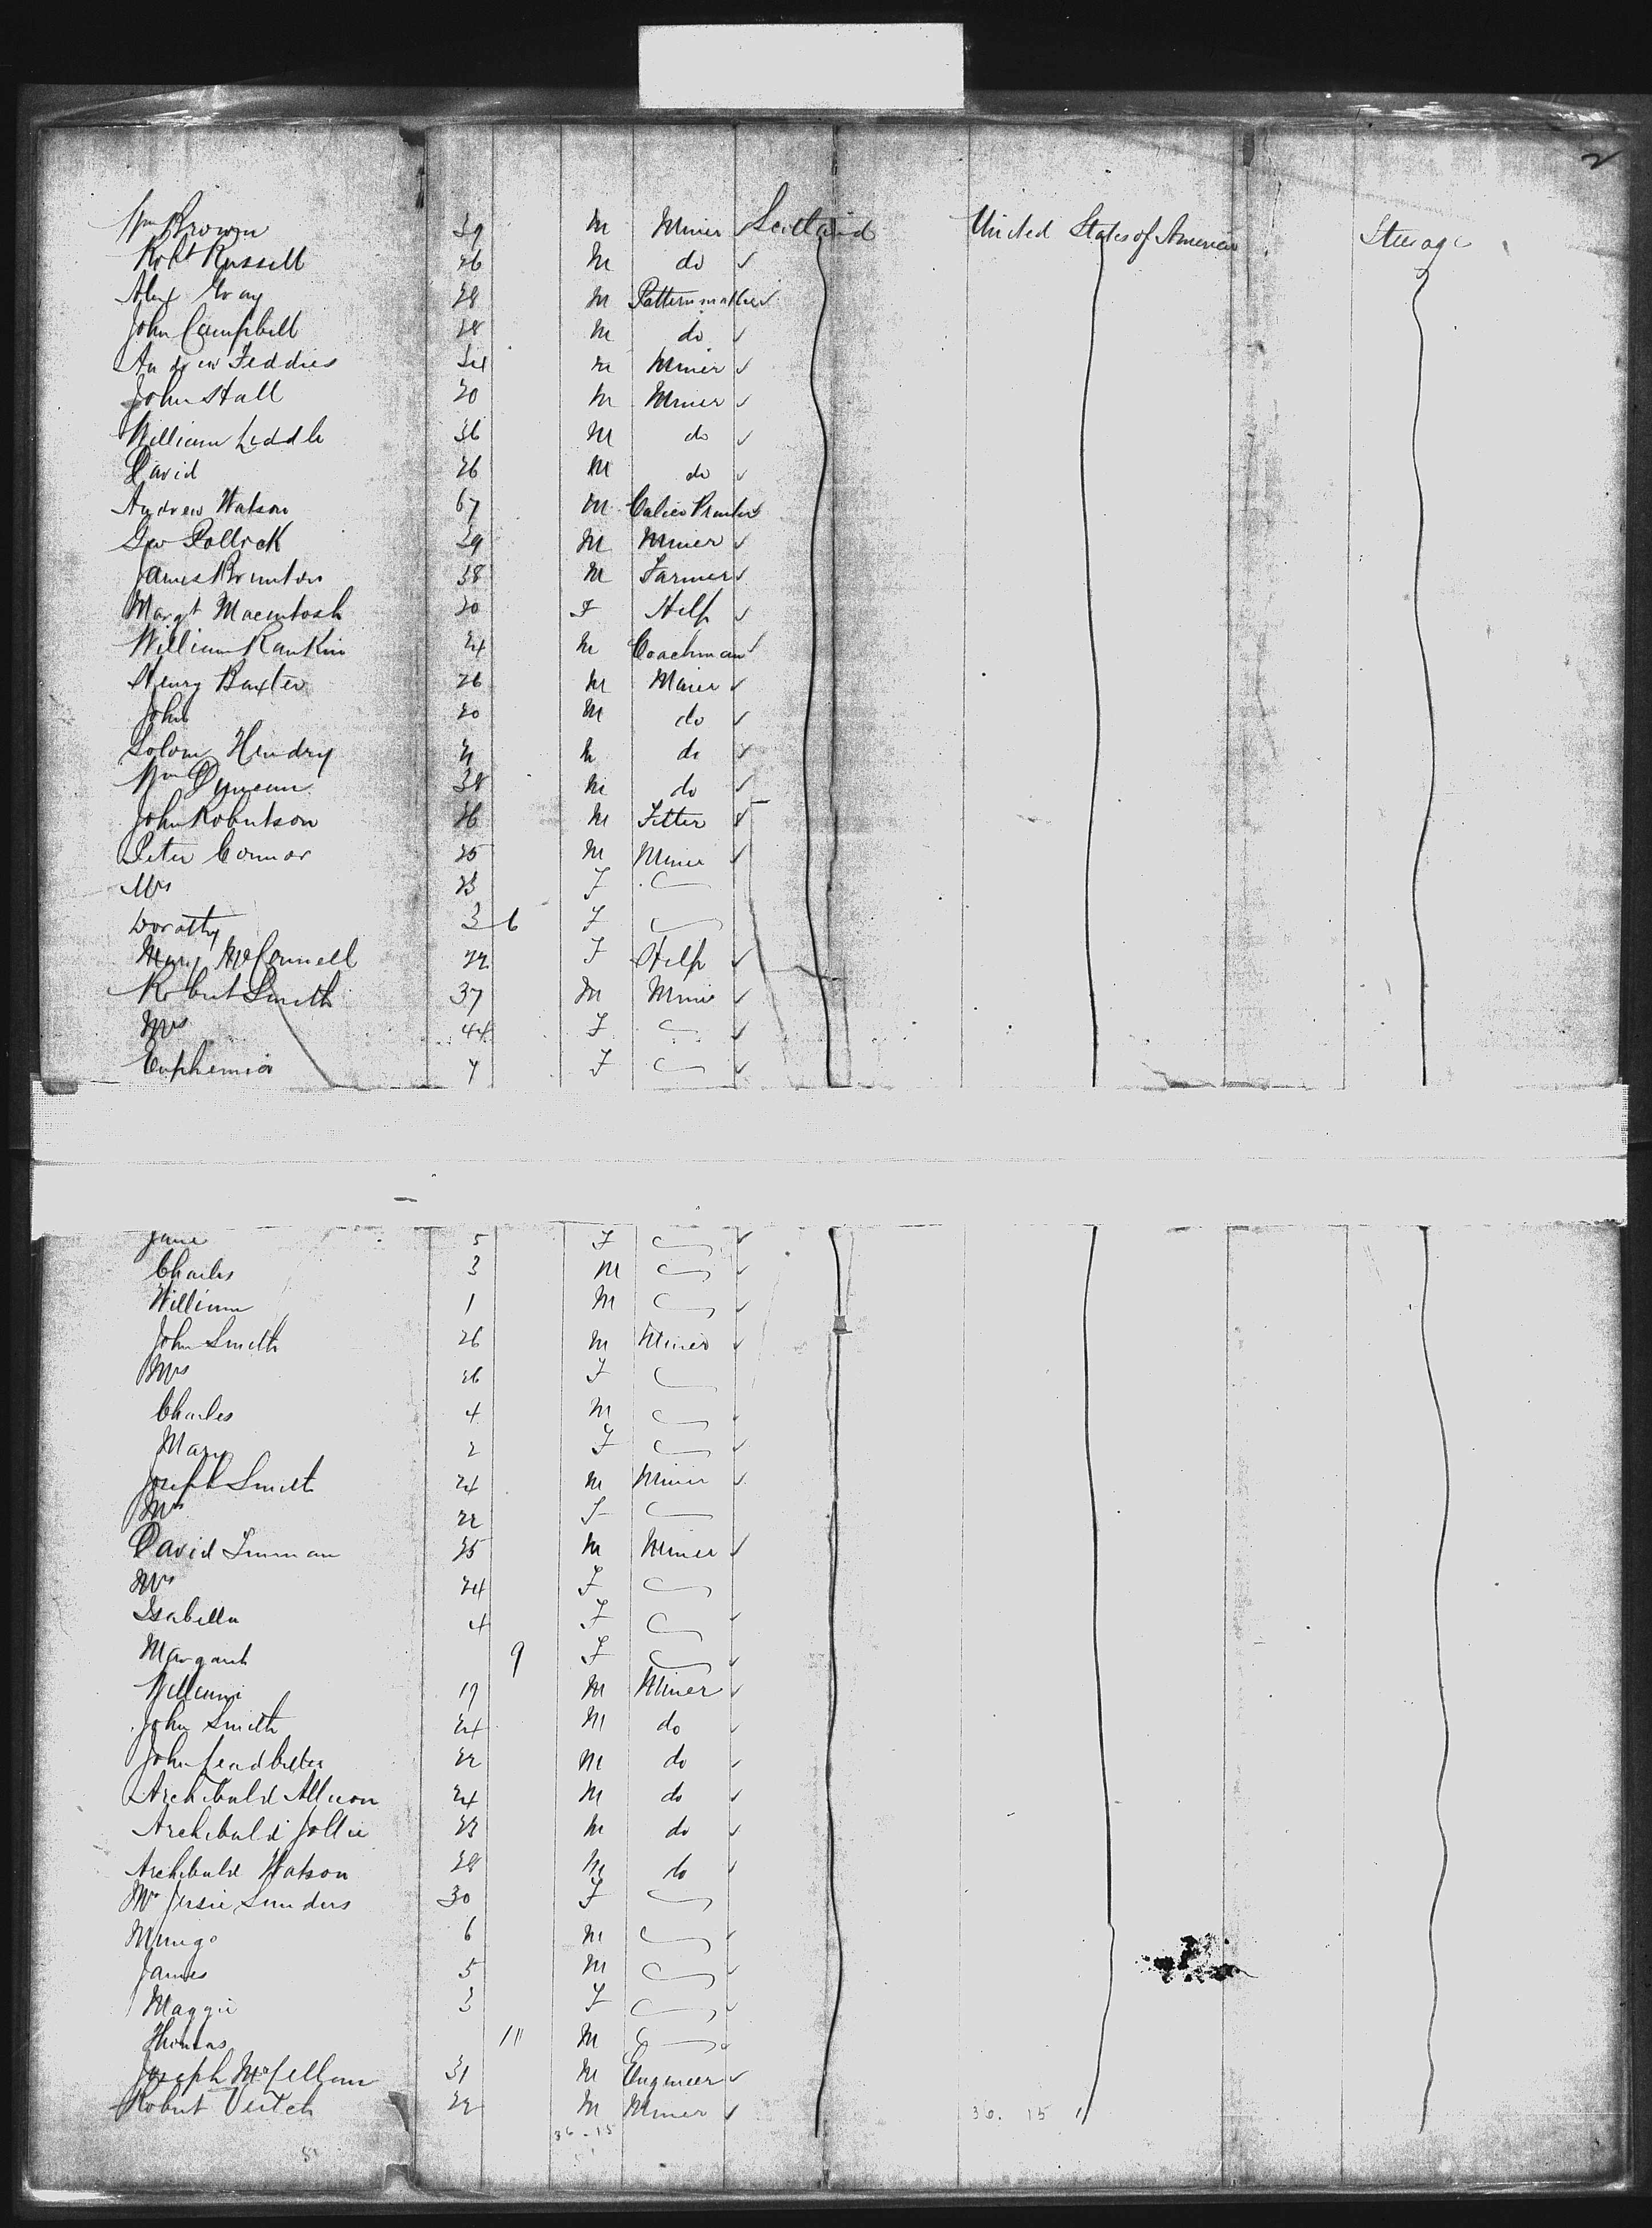 2
Wm Brown 39 M Miner Scotland United States of America Steerage
Robt Russell 26 M do
Alex Gray 28 M Patternmaker
John Campbell 28 M do
Andrew Feddies 34 M Miner
John Hall 20 M Miner
William Liddle 36 M do
David 26 M do
Andrew Watson 67 M Calico Printer
Geo Pollock 39 M Miner
James Brunton 38 M Farmer
Margt Macintosh 20 F Help
William Rankin 24 M Coachman
Henry Baxter 26 M Miner
John 20 M do
Solom Hendry M do
Wm Duncan 38 M do
John Robertson 26 M Fitter
Peter Connor 25 M Miner
Mrs 23 F
Dorothy 3 6 F
Mary McConnell 22 F Help
Robert Smith 37 M Miner
Mrs 44 F
Euphemia 7 F
Jane 5 F
Charles 3 M
William 1 M
John Smith 26 M Miner
Mrs 26 F
Charles 4 M
Mary 2 F
Joseph Smith 24 M Miner
Mrs 22 F
David Inman 25 M Miner
Mrs 24 F
Isabella 4 F
Margaret 9 F
William 19 M Miner
John Smith 24 M do
John Leadbetter 22 M do
Archibald Allison 24 M do
Archibald Jollie 23 M do
Archibald Watson 28 M do
Mrs Jessie Sunders 30 F
Mungo 6 M
James 5 M
Maggie 3 F
Thomas 11 M
Joseph McLellan 31 M Engineer
Robert Veitch 22 M Miner
36 . 15 36. 15